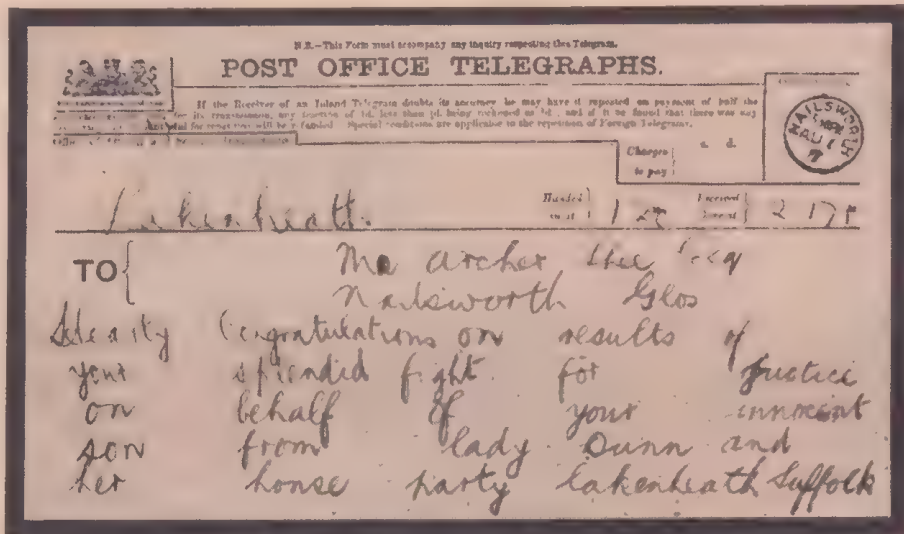 N.B.—This Form must accompany any inquiry respecting this Telegram.
POST OFFICE TELEGRAPHS.
If the Receiver of an Inland Telegram doubts its accuracy he may have it repeated on payment of half the
for its transmission, any fraction of 1d. less than ½d. being reckoned as ½d.; and if it be found that there was any
for repetition will be refunded. Special conditions are applicable to the repetition of Foreign Telegrams.
Charges to pay } s. d.
NAILSWORTH
AU 7
Lakenheath. Handed in at } 1 Received here at } 2 17
TO { Mr Archer Shee
Nailsworth Glos
Hearty Congratulations on results of
your splendid fight for justice
on behalf of your innocent
son from lady Dunn and
her house party Lakenheath Suffolk